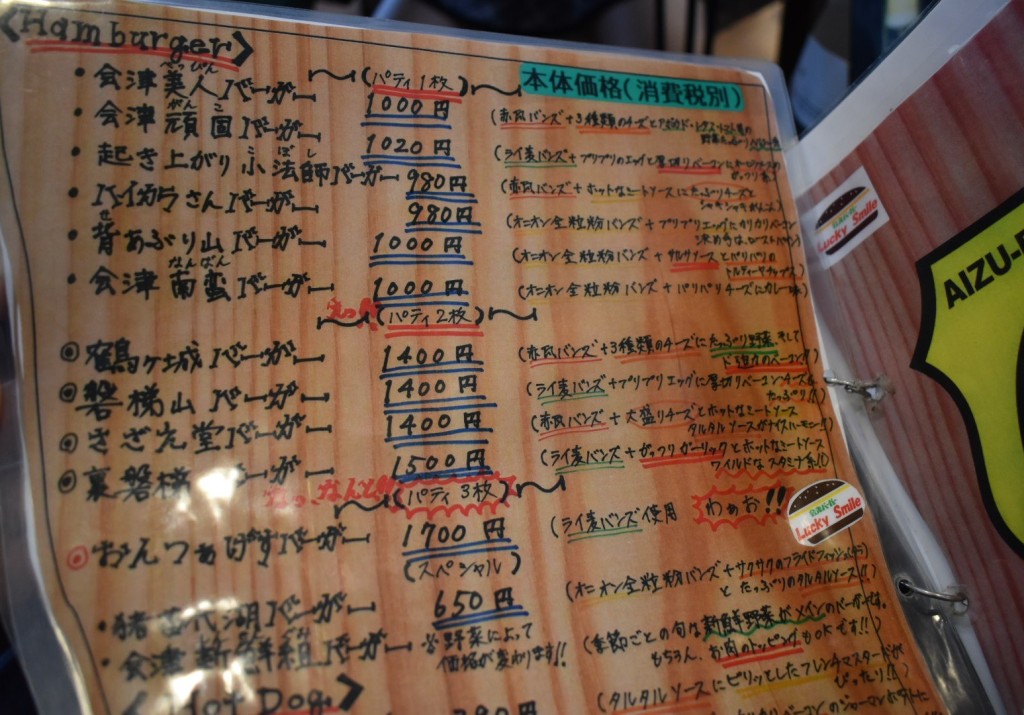 <Hamburger>
(パティ1枚)
本体価格(消費税別)
べっぴん
・会津美人バーガー 1000円
がんこ
・会津頑固バーガー 1020円
(ライ麦バンズ+プリプリのエッグと厚切りベーコン
こぼし
・起き上がり小法師バーガー 980円
(赤瓦バンズ+ホットなミートソースにたっぷりチーズと
・ハイカラさんバーガー 980円
(オニオン全粒粉バンズ+プリプリエッグにカリカリベーコン
せ
・背あぶり山バーガー 1000円
(オニオン全粒粉バンズ+タルタルソースとパリパリの
トルティーヤチップス)
なんばん
・会津南蛮バーガー 1000円
(オニオン全粒粉バンズ+パリパリチーズにカレー味)
(パティ2枚)
◎鶴ヶ城バーガー 1400円
(赤瓦バンズ+3種類のチーズにたっぷり野菜、そして
◎磐梯山バーガー 1400円
(ライ麦バンズ+プリプリエッグに厚切りベーコンチーズも
たっぷり!!)
◎さざえ堂バーガー 1400円
(赤瓦バンズ+大盛りチーズとホットなミートソース
タルタルソースがナイスハーモニー!!)
◎裏磐梯バーガー 1500円
(ライ麦バンズ+ガッツリガーリックとホットなミートソース
ワイルドなスタミナ系!!)
なっ、なんと
(パティ3枚)
◎おんつぁげすバーガー 1700円
(ライ麦バンズ使用
わぁお!!
(スペシャル)
・猪苗代湖バーガー 650円
(オニオン全粒粉バンズ+サクサクのフライドフィッシュ
とたっぷりのタルタルソース!!)
・会津新鮮組バーガー ※野菜によって
価格が変わります!!
(季節ごとの旬な新鮮野菜がメインのバーガーです。
もちろん、お肉のトッピングもOKです!!)
<Hot Dog>
(タルタルソースにピリッとしたフレンチマスタードが
ぴったり!!)
Lucky Smile
Lucky Smile
AIZU-